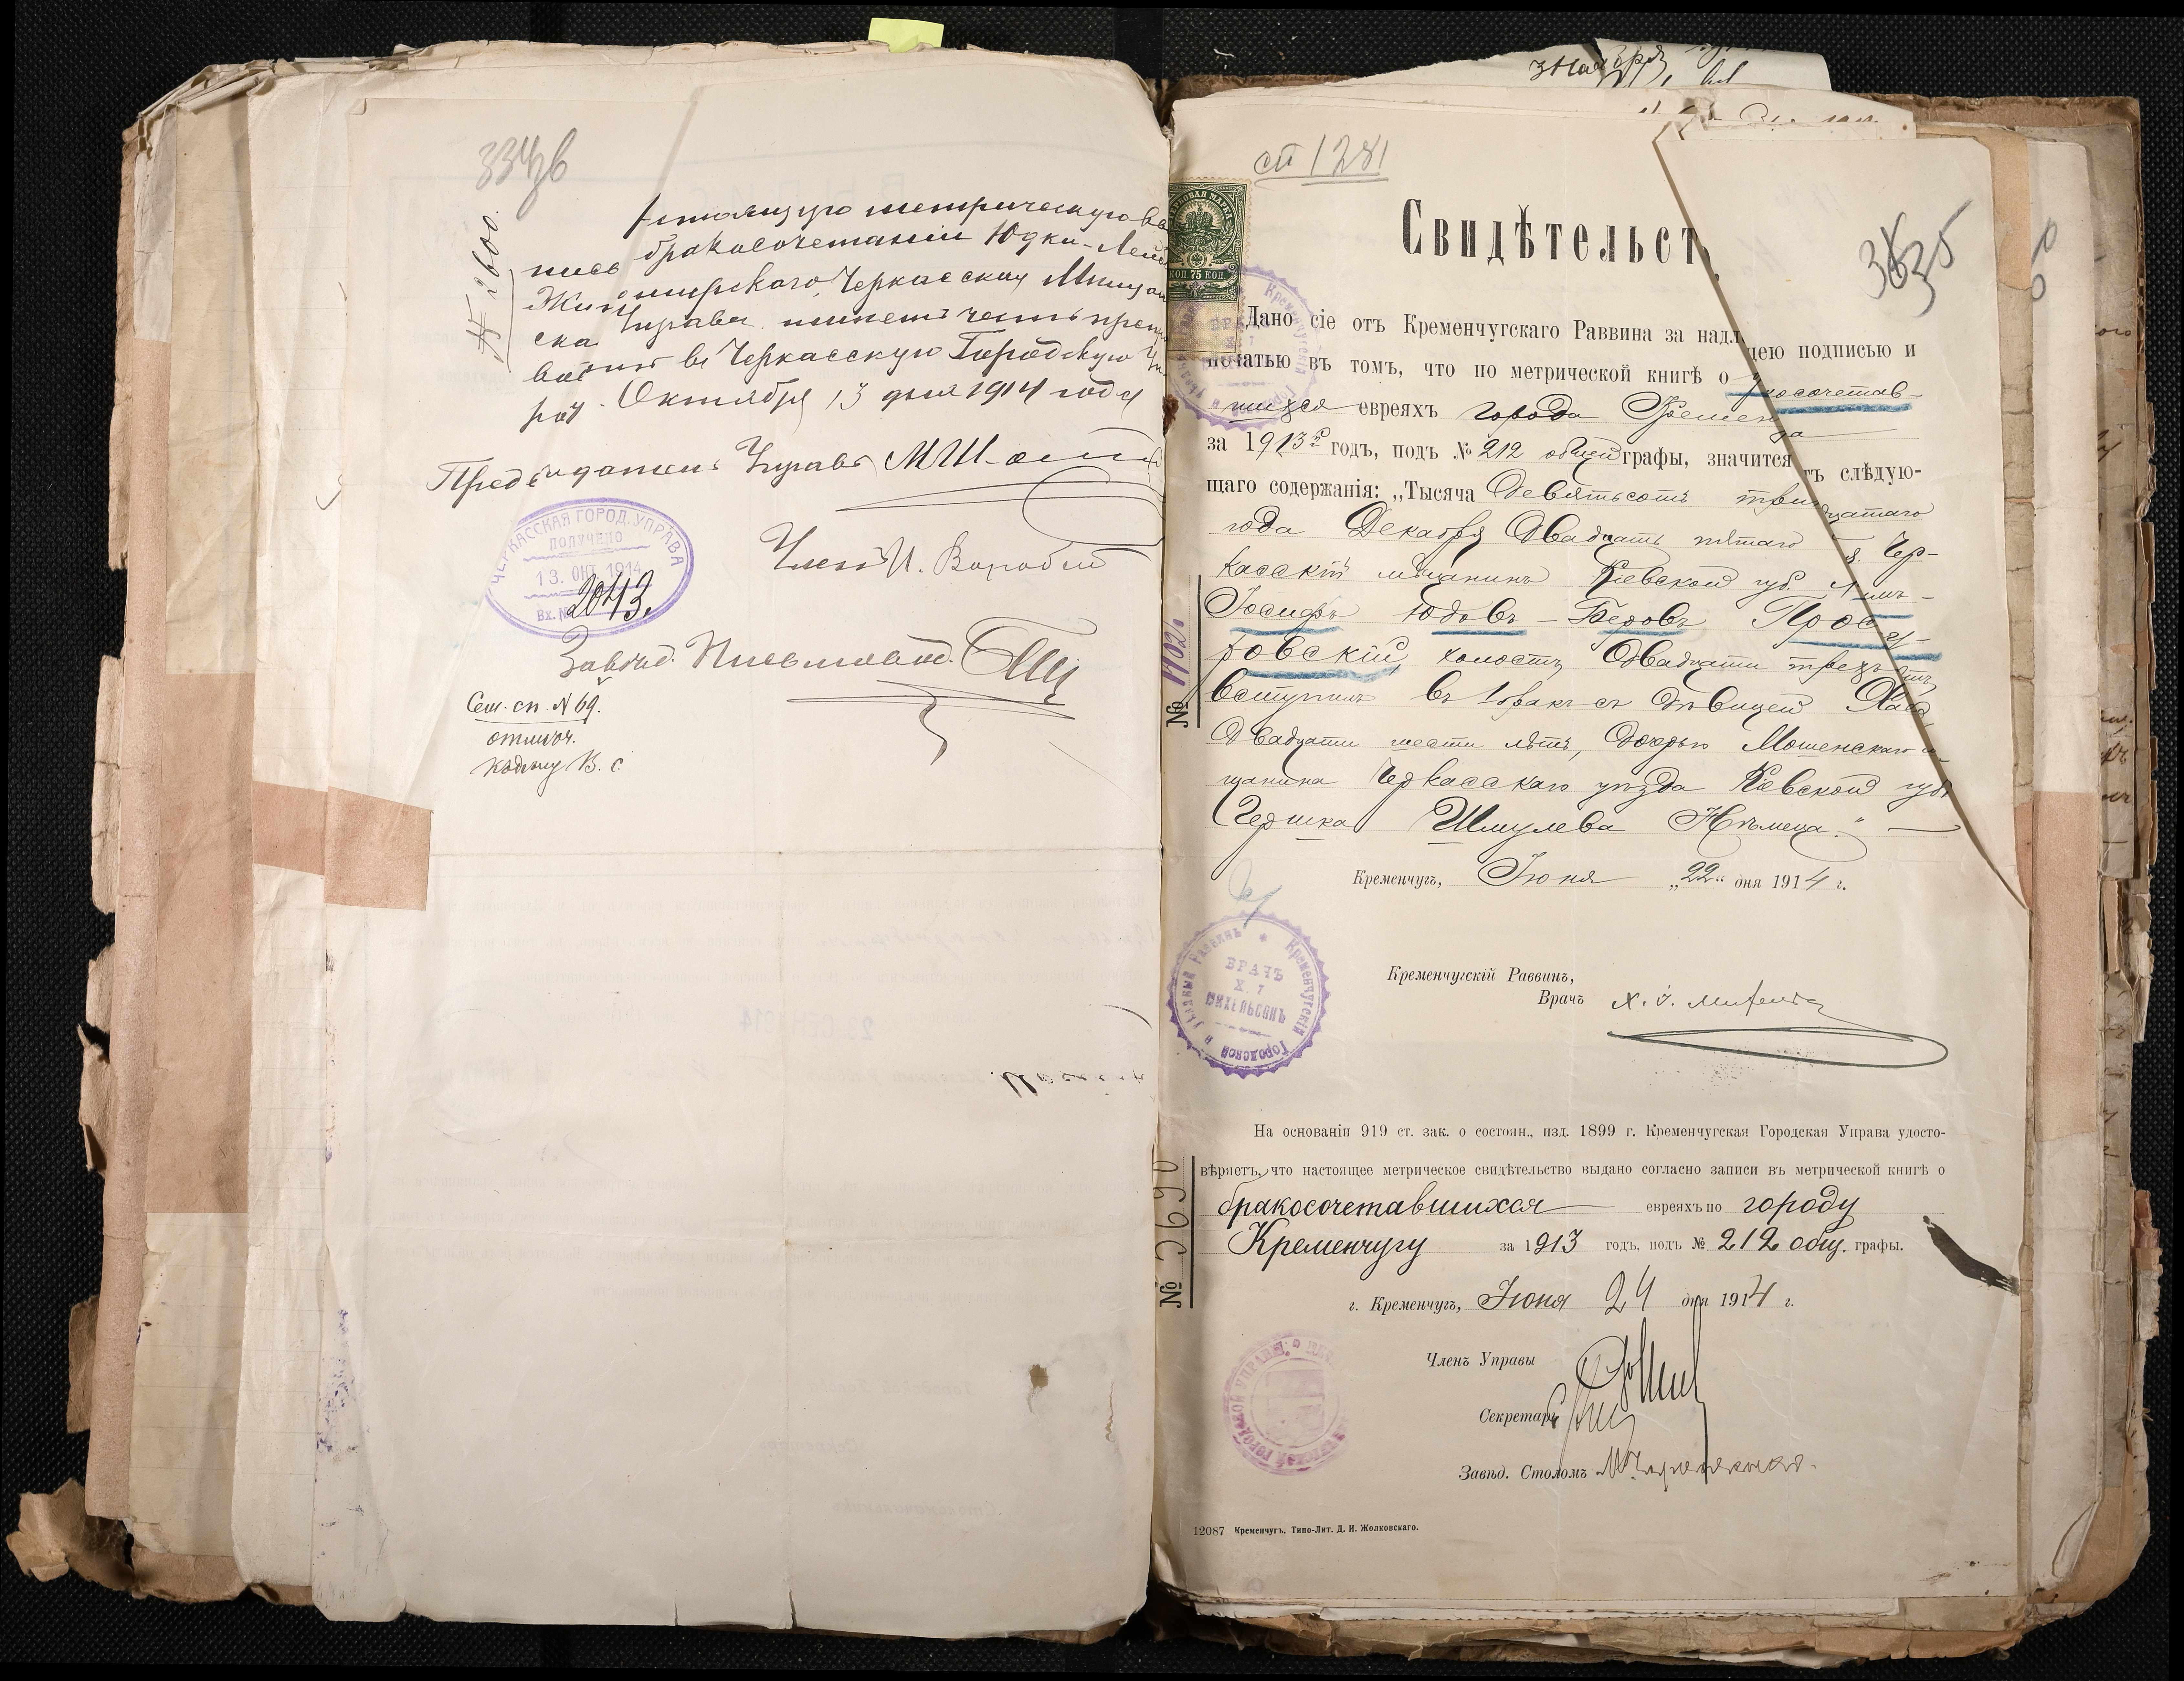 334 зв
№ 2600.
метрическую вы
пись бракосочетаніи Юдки-Лей
Черкасская Мещан
ская Управа имѣетъ честь препро
вадить въ Черкасскую Городскую Уп
раву. Октября 13 дня 1914 года
Предсѣдатель Управы
Членъ И. Воробьев
ЧЕРКАССКАЯ ГОРОД. УПРАВА
ПОЛУЧЕНО
13. ОКТ. 1914
Вх. № 2043.
Завѣд. Письмовод.
Сем. сп. № 69.
отмѣч.
В. С.
ст 1281
335
КОП. 75 КОП.
Свидѣтельст
Дано сіе отъ Кременчугскаго Раввина за надл щею подписью и
печатью въ томъ, что по метрической книгѣ о косочетав-
шихся евреяхъ города Кремен га
за 1913й годъ, подъ № 212 общей графы, значится тъ слѣдую-
щаго содержанія: „Тысяча девятьсотъ тринадцатаго
года Декабря двадцать пятаго Чер-
касскій мѣщанинъ Кіевской губ.
Іосифъ Юдовъ-Беровъ Проску-
ровскій, холостъ, двадцати трехъ лѣтъ,
вступилъ въ 1 бракъ съ дѣвицей Хаей,
двадцати шести лѣтъ, дочерью Мошенскаго м
щанина Черкасскаго уѣзда Кіевской губ.
Гершка Шмулева Нѣмеца."
Кременчугъ, Іюня „22" дня 1914 г.
№ 1102
Кременчугскій Раввинъ,
Врачъ Х. І. Михельсонъ
Кременчугскій Городской и уѣздный Раввинъ
ВРАЧЪ
Х. І.
МИХЕЛЬСОНЪ
На основаніи 919 ст. зак. о состоян., изд. 1899 г. Кременчугская Городская Управа удосто-
вѣряетъ, что настоящее метрическое свидѣтельство выдано согласно записи въ метрической книгѣ о
бракосочетавшихся евреяхъ по городу
Кременчугу за 1913 годъ, подъ № 212 общ. графы.
г. Кременчугъ, Іюня 24 дня 1914 г.
№ 3690
Членъ Управы
Секретарь
Завѣд. Столомъ
12087 Кременчугъ. Типо-Лит. Д. И. Жолковскаго.